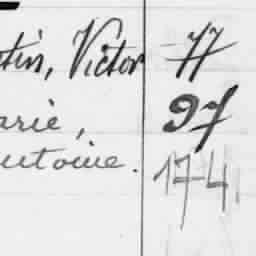 tin, Victor 77
arie, 97
ntoine. 174